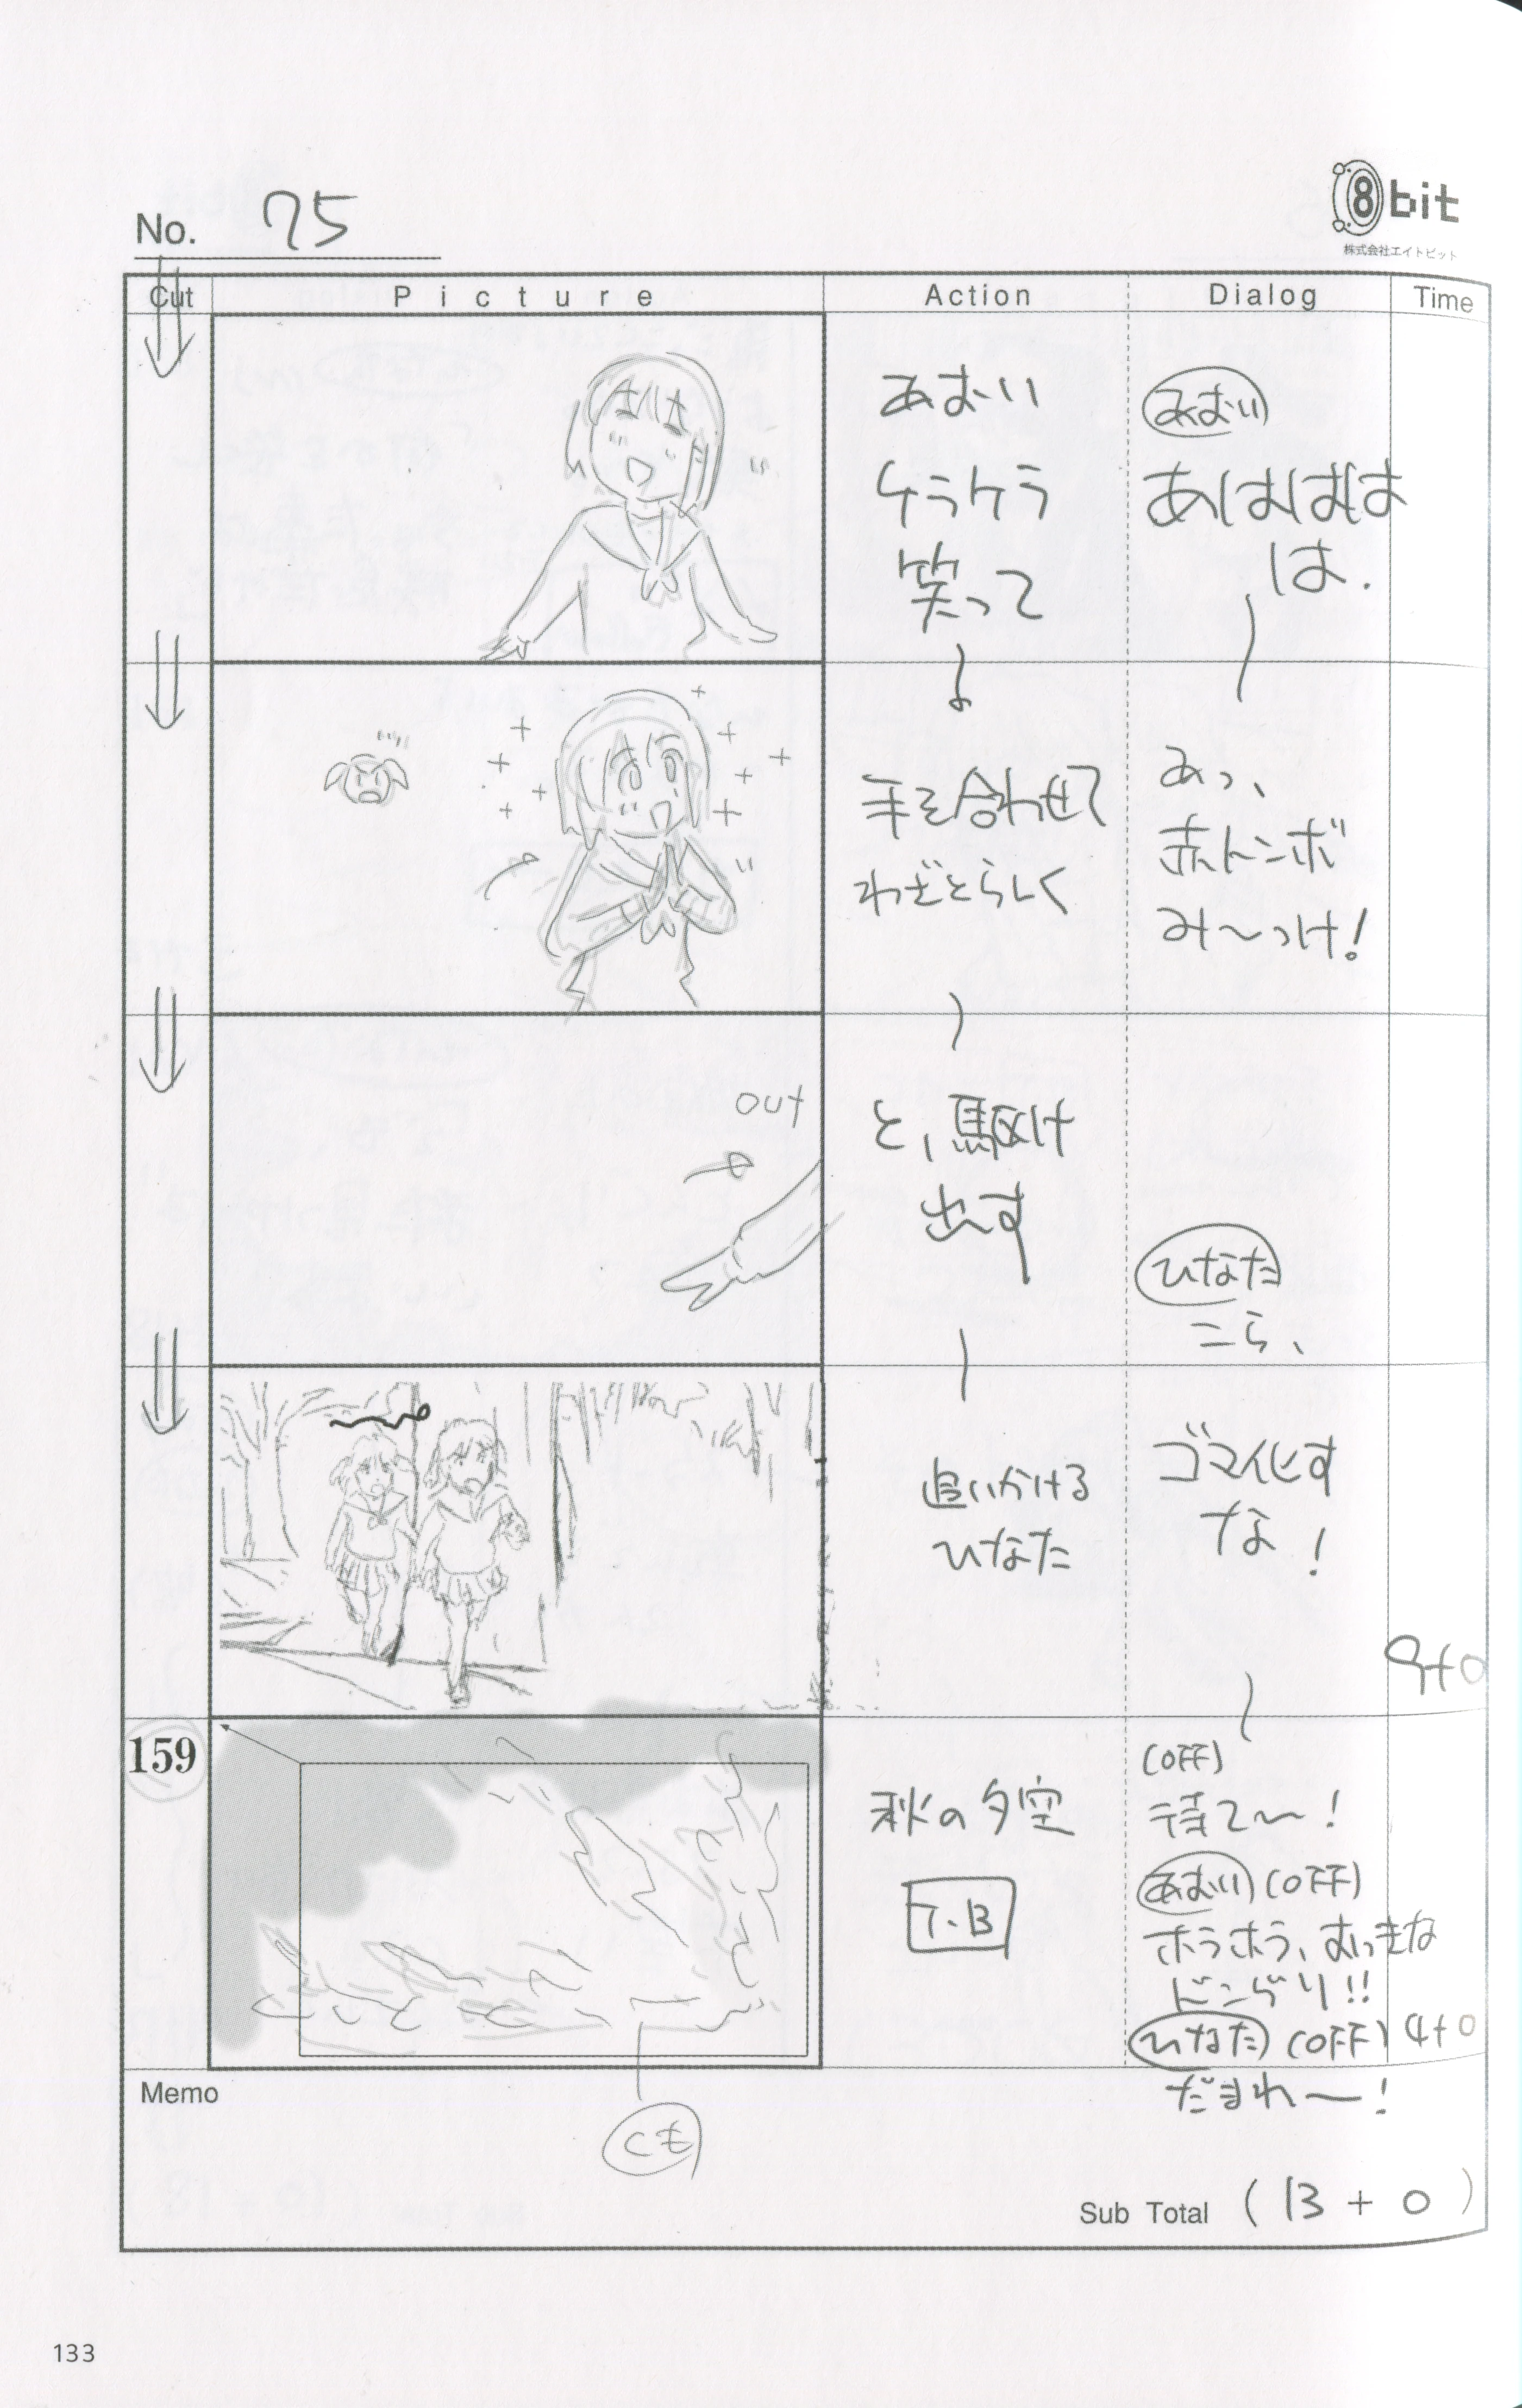 No. 75
8bit
株式会社エイトビット
Cut Picture Action Dialog Time
あおい
ケラケラ
笑って
あおい
あはははは
は.
手を合わせて
わざとらしく
あっ、
赤トンボ
み〜っけ!
OUT
と、駆け
出す
ひなた
こら、
追いかける
ひなた
ゴマ化す
な!
9+0
159
秋の夕空
T.B
(OFF)
待て〜!
あおい (OFF)
ホラホラ、おっきな
ドングリ!!
ひなた (OFF)
だまれ〜!
4+0
Memo
Sub Total (13+0)
133